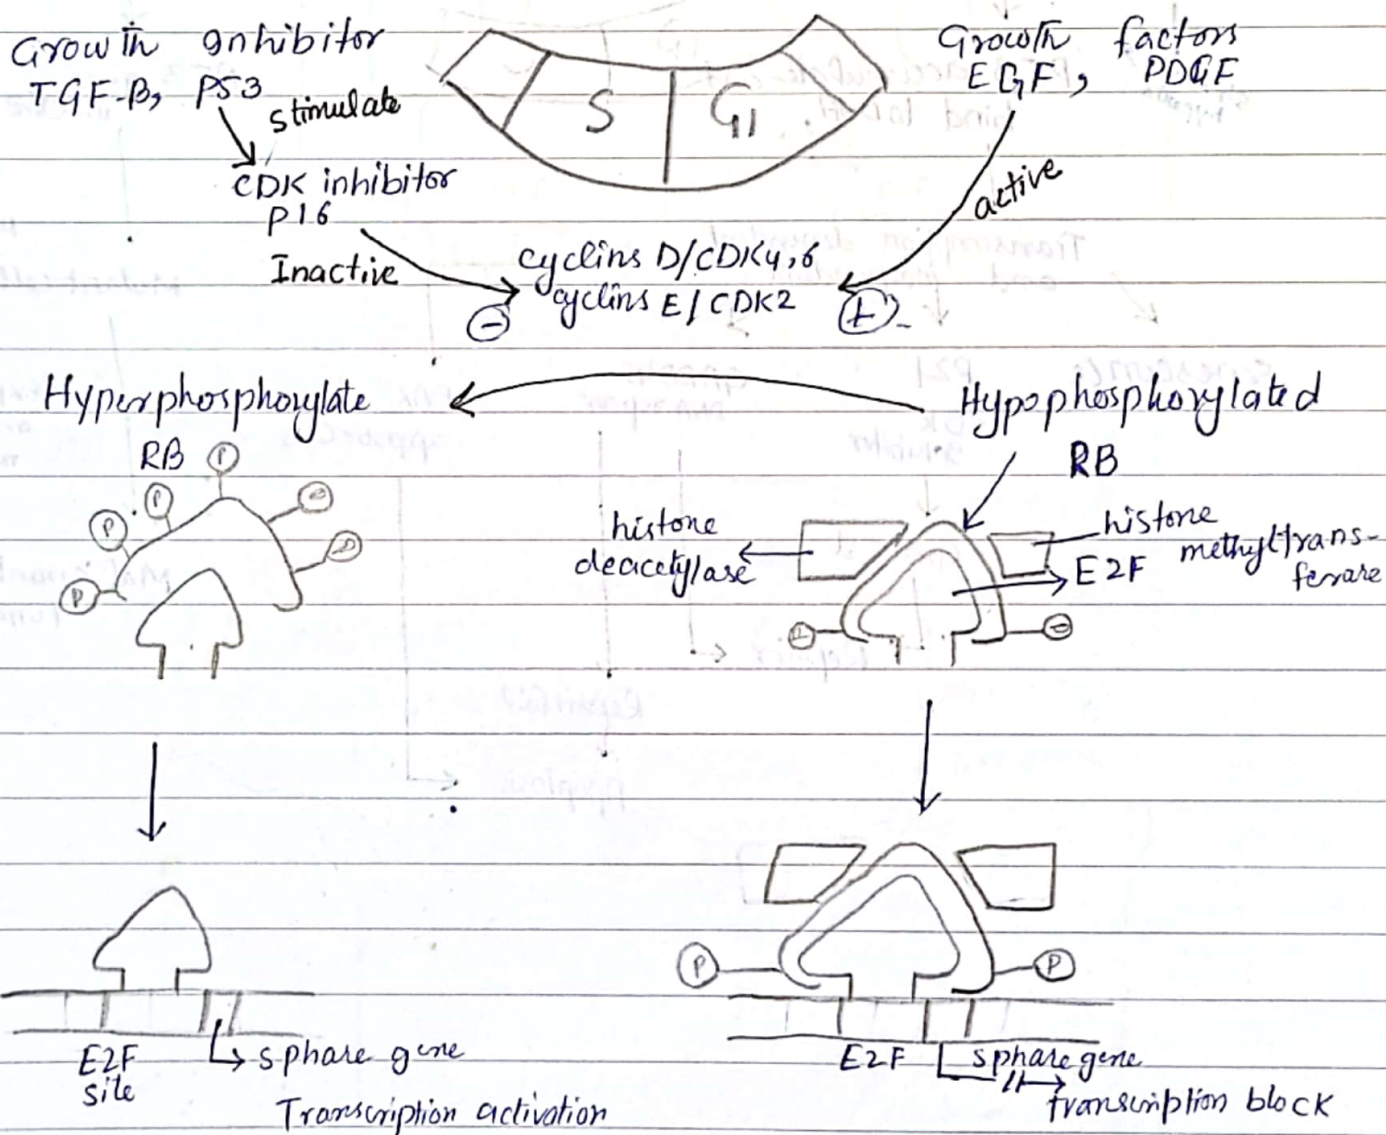 Growth Inhibitor
TGF-B, P53
stimulate
CDK inhibitor
P16
Inactive
S
G1
Growth factors
EGF, PDGF
active
cyclins D/CDK4,6
cyclins E/CDK2
-
+
Hyperphosphorylate
RB
P
P
P
P
P
P
Hypophosphorylated
RB
histone
deacetylase
histone
methyltrans-
ferase
E2F
P
P
E2F
site
S phase gene
Transcription activation
P
P
E2F
S phase gene
transcription block